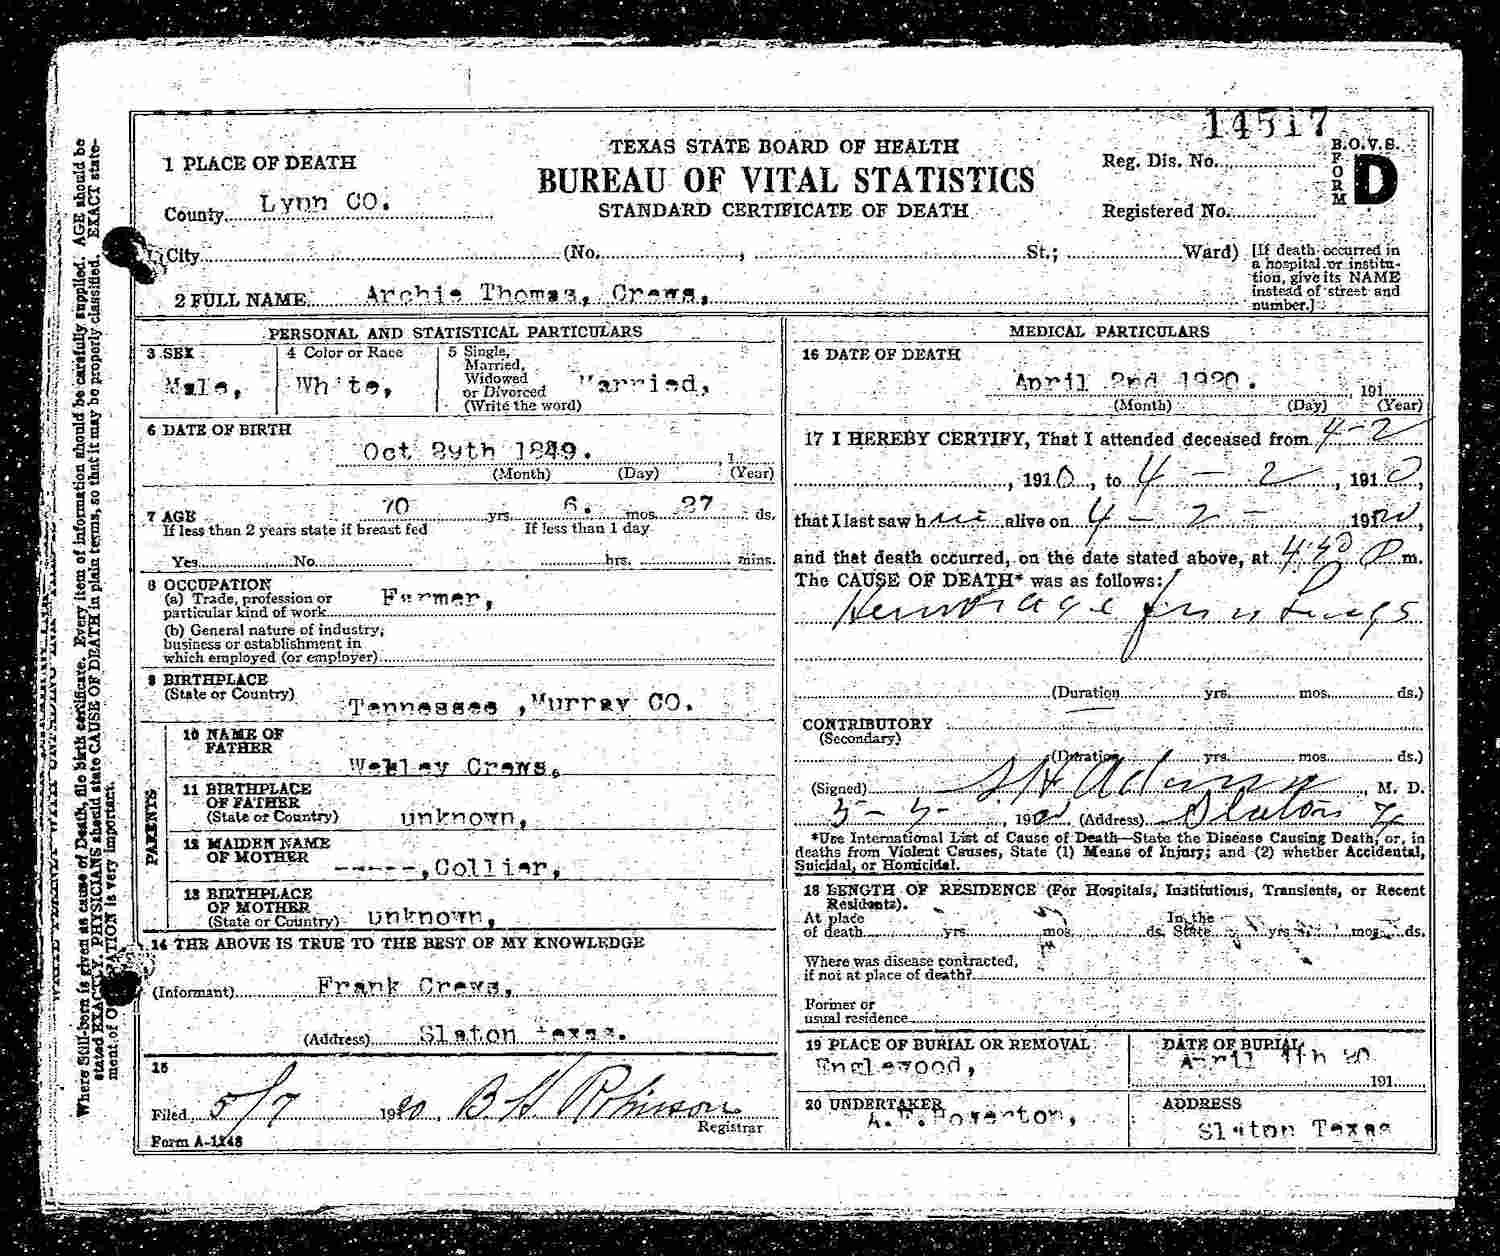 14517
TEXAS STATE BOARD OF HEALTH
BUREAU OF VITAL STATISTICS
STANDARD CERTIFICATE OF DEATH
B.O.V.S.
FORM D
Reg. Dis. No.
Registered No.
1 PLACE OF DEATH
County Lynn CO.
City (No. , St.; Ward)
[If death occurred in
a hospital or institu-
tion, give its NAME
instead of street and
number.]
2 FULL NAME Archie Thomas, Crews,
PERSONAL AND STATISTICAL PARTICULARS
3 SEX
Male,
4 Color or Race
White,
5 Single,
Married,
Widowed
or Divorced
(Write the word)
Married,
6 DATE OF BIRTH
Oct 29th 1849. , 1
(Month) (Day) (Year)
7 AGE 70 yrs. 6. mos. 27 ds.
If less than 2 years state if breast fed If less than 1 day
Yes No hrs. mins.
8 OCCUPATION
(a) Trade, profession or
particular kind of work Farmer,
(b) General nature of industry,
business or establishment in
which employed (or employer)
9 BIRTHPLACE
(State or Country)
Tennessee ,Murray CO.
PARENTS
10 NAME OF
FATHER
Wekley Crews.
11 BIRTHPLACE
OF FATHER
(State or Country) unknown,
12 MAIDEN NAME
OF MOTHER
-----,Collier,
13 BIRTHPLACE
OF MOTHER
(State or Country) unknown,
14 THE ABOVE IS TRUE TO THE BEST OF MY KNOWLEDGE
(Informant) Frank Crews,
(Address) Slaton Texas.
15
Filed 5/7 1920, B. H. Robinson
Registrar
Form A-1248
MEDICAL PARTICULARS
16 DATE OF DEATH
April 2nd 1920. , 191
(Month) (Day) (Year)
17 I HEREBY CERTIFY, That I attended deceased from 4-2
, 1910, to 4 - 2 , 1910,
that I last saw him alive on 4 - 2 - 1920,
and that death occurred, on the date stated above, at 4:30 P m.
The CAUSE OF DEATH* was as follows:
Hemorrhage from Lungs
(Duration yrs. mos. ds.)
CONTRIBUTORY
(Secondary)
(Duration yrs. mos. ds.)
(Signed) S H Adams , M. D.
5-5- , 1920 (Address) Slaton Tx
*Use International List of Cause of Death—State the Disease Causing Death, or, in
deaths from Violent Causes, State (1) Means of Injury; and (2) whether Accidental,
Suicidal, or Homicidal.
18 LENGTH OF RESIDENCE (For Hospitals, Institutions, Transients, or Recent
Residents).
At place In the
of death yrs. mos. ds. State yrs. mos. ds.
Where was disease contracted,
if not at place of death?
Former or
usual residence
19 PLACE OF BURIAL OR REMOVAL
Englewood,
DATE OF BURIAL
April 4th 20
191
20 UNDERTAKER
ADDRESS
Slaton Texas
Where Still-born is given as cause of Death, file birth certificate. Every item of information should be carefully supplied. AGE should be
stated EXACTLY. PHYSICIANS should state CAUSE OF DEATH in plain terms, so that it may be properly classified. EXACT state-
ment of OCCUPATION is very important.